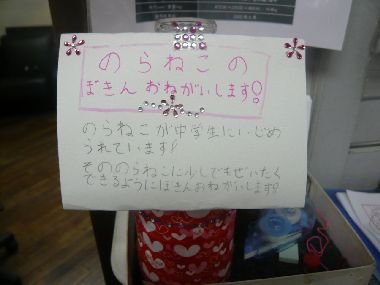 のらねこの
ぼきんおねがいします!
のらねこが中学生にいじめ
られています!
そののらねこに少しでもぜいたく
できるようにぼきんおねがいします!